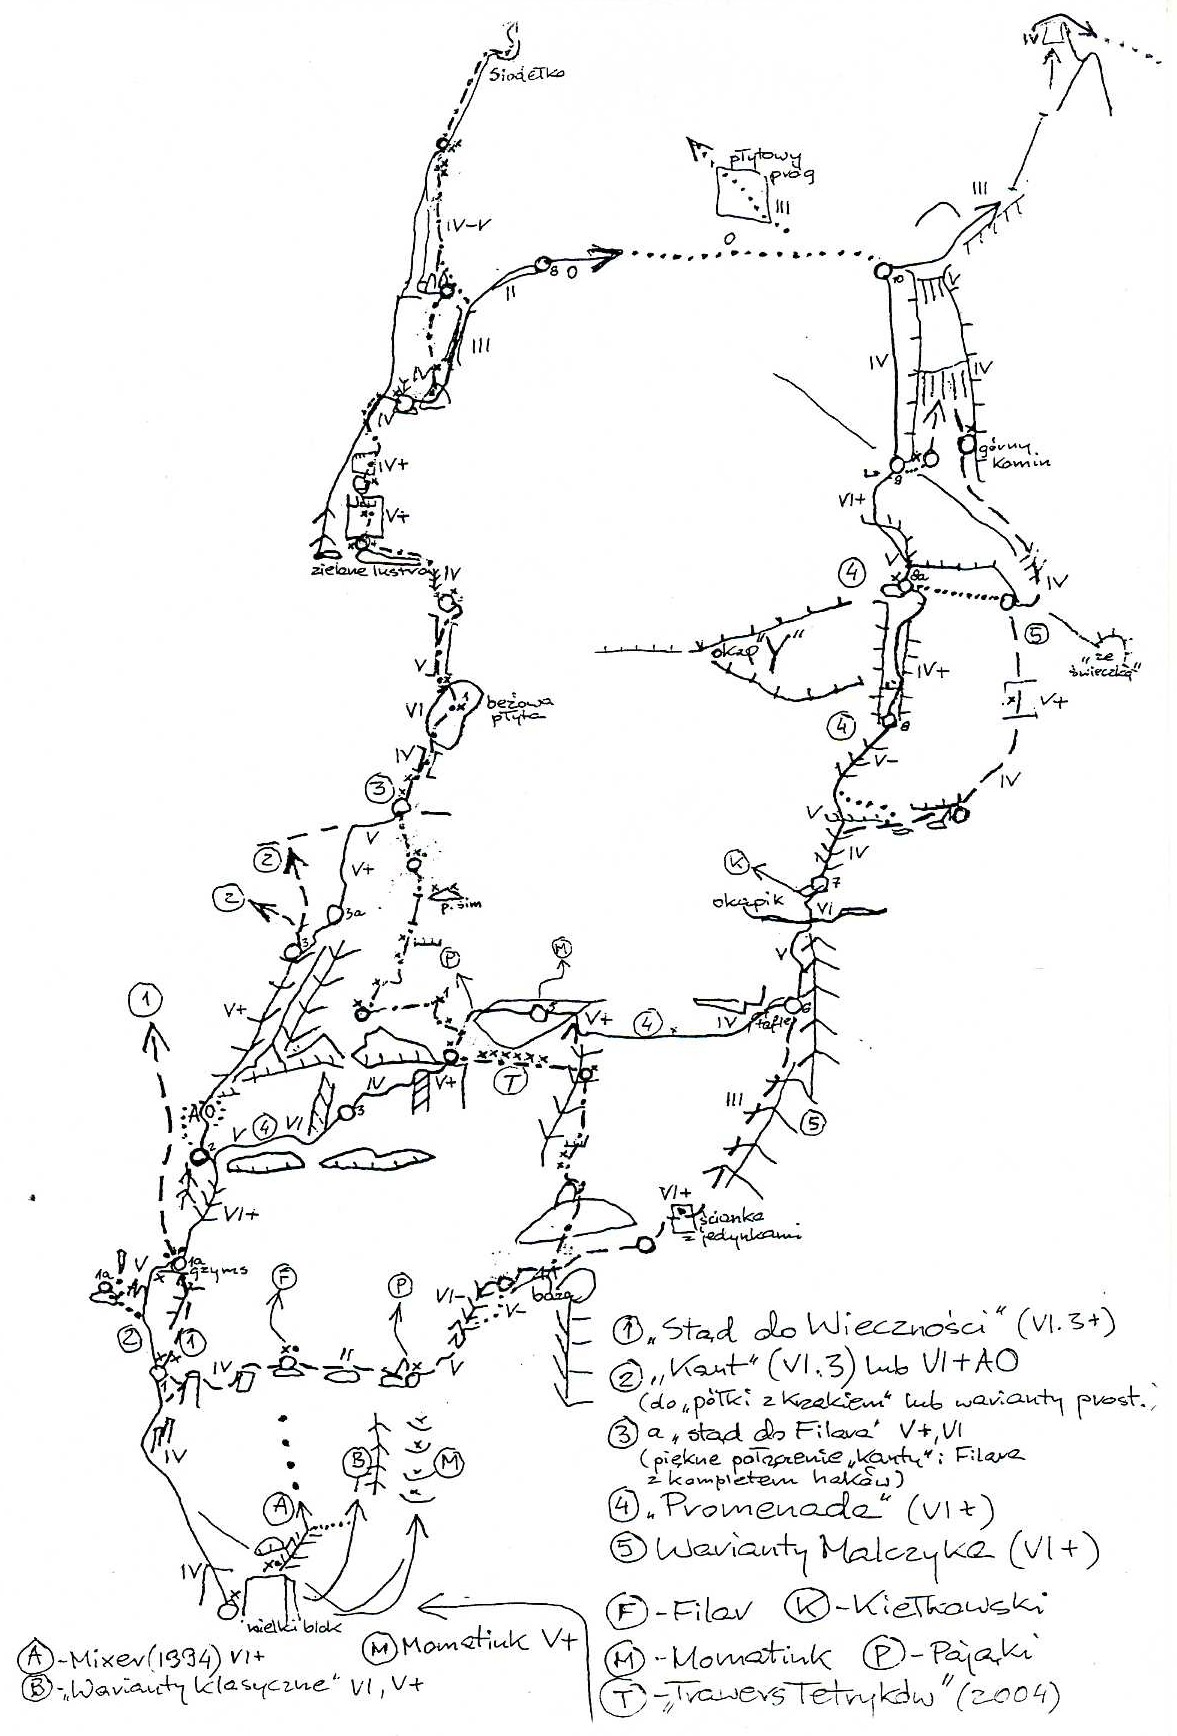 Siodełko
IV
płytowy
próg
III
III
IV-V
O
8 O
II
10
V
III
IV
IV
IV
IV
górny
komin
IV+
9
VI+
V+
zielone lustro
IV
V
4
8a
IV
5
okap "Y"
"ze
świeczką"
V
IV+
VI
1
beżowa
płyta
V+
4
8
IV
V-
IV
3
V
V
IV
2
V+
K
7
2
3a
okapik
VI
p. Sim
3
P
M
V
1
V+
5
V+
4
IV
płafle
6
IV
V+
T
III
AO
V
4
VI
3
5
2
VI+
VI+
ścianka
z jedynkami
1a
V
1a
gzyms
F
P
VI-
V-
baza
2
1
IV
II
V
1
IV
B
M
A
IV
wielki blok
1 „Stąd do Wieczności" (VI.3+)
2 „Kant" (VI.3) lub VI+AO
(do „półki z krzakiem" lub warianty prost.)
3 a „stąd do Filara" V+, VI
(piękne połączenie „Kantu" i Filara
z kompletem haków)
4 „Promenada" (VI+)
5 Warianty Malczyka (VI+)
F - Filar K - Kiełkowski
M - Momatiuk P - Pająki
T - „Trawers Tetryków" (2004)
A - Mixer (1994) VI+
M Momatiuk V+
B - „Warianty klasyczne" VI, V+